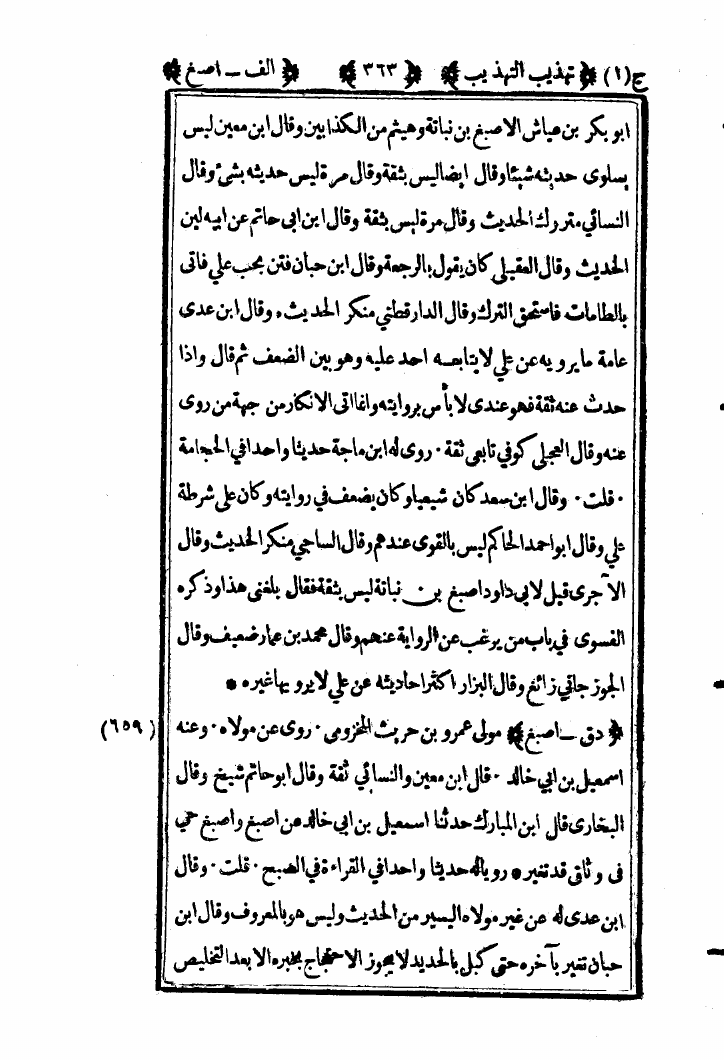 ج(١) ﴿ تهذيب التهذيب ﴾ ﴿ ٣٦٣ ﴾ ﴿ الف ـ اصبغ ﴾
ابو بكر بن عياش الاصبغ بن نباتة وهيثم من الكذابين وقال ابن معين ليس
يساوى حديثه شيئا وقال ايضا ليس بثقة وقال مرة ليس حديثه بشئ وقال
النسائي متروك الحديث وقال مرة ليس بثقة وقال ابن ابى حاتم عن ابيه لين
الحديث وقال العقيلى كان يقول بالرجعة وقال ابن حبان فتن بحب علي فاتى
بالطامات فاستحق الترك وقال الدارقطني منكر الحديث. وقال ابن عدى
عامة ما يرويه عن علي لا يتابعه احد عليه وهو بين الضعف ثم قال واذا
حدث عنه ثقة فهو عندى لا بأس بروايته وانما اتى الانكار من جهة من روى
عنه وقال العجلى كوفي تابعى ثقة ٠ روى له ابن ماجة حديثا واحدا في الحجامة
٠ قلت ٠ وقال ابن سعد كان شيعيا وكان يضعف في روايته وكان على شرطة
علي وقال ابو احمد الحاكم ليس بالقوى عندهم وقال الساجي منكر الحديث وقال
الآجرى قيل لابى داود اصبغ بن نباتة ليس بثقة فقال بلغنى هذا وذكره
الفسوى في باب من يرغب عن الرواية عنهم وقال محمد بن عمار ضعيف وقال
الجوزجاني زائغ وقال البزار اكثر احاديثه عن علي لا يرويها غيره *
﴿ دق ـ اصبغ ﴾ مولى عمرو بن حريث المخزومى ٠ روى عن مولاه ٠ وعنه (٦٥٩)
اسمعيل بن ابي خالد ٠ قال ابن معين والنسائي ثقة وقال ابو حاتم شيخ وقال
البخارى قال ابن المبارك حدثنا اسمعيل بن ابى خالد عن اصبغ واصبغ حي
فى وثاق قد تغير * رويا له حديثا واحدا في القراءة في الصبح ٠ قلت ٠ وقال
ابن عدى له عن غير مولاه اليسير من الحديث وليس هو بالمعروف وقال ابن
حبان تغير بآخره حتى كبل بالحديد لا يجوز الاحتجاج بخبره الا بعد التخليص